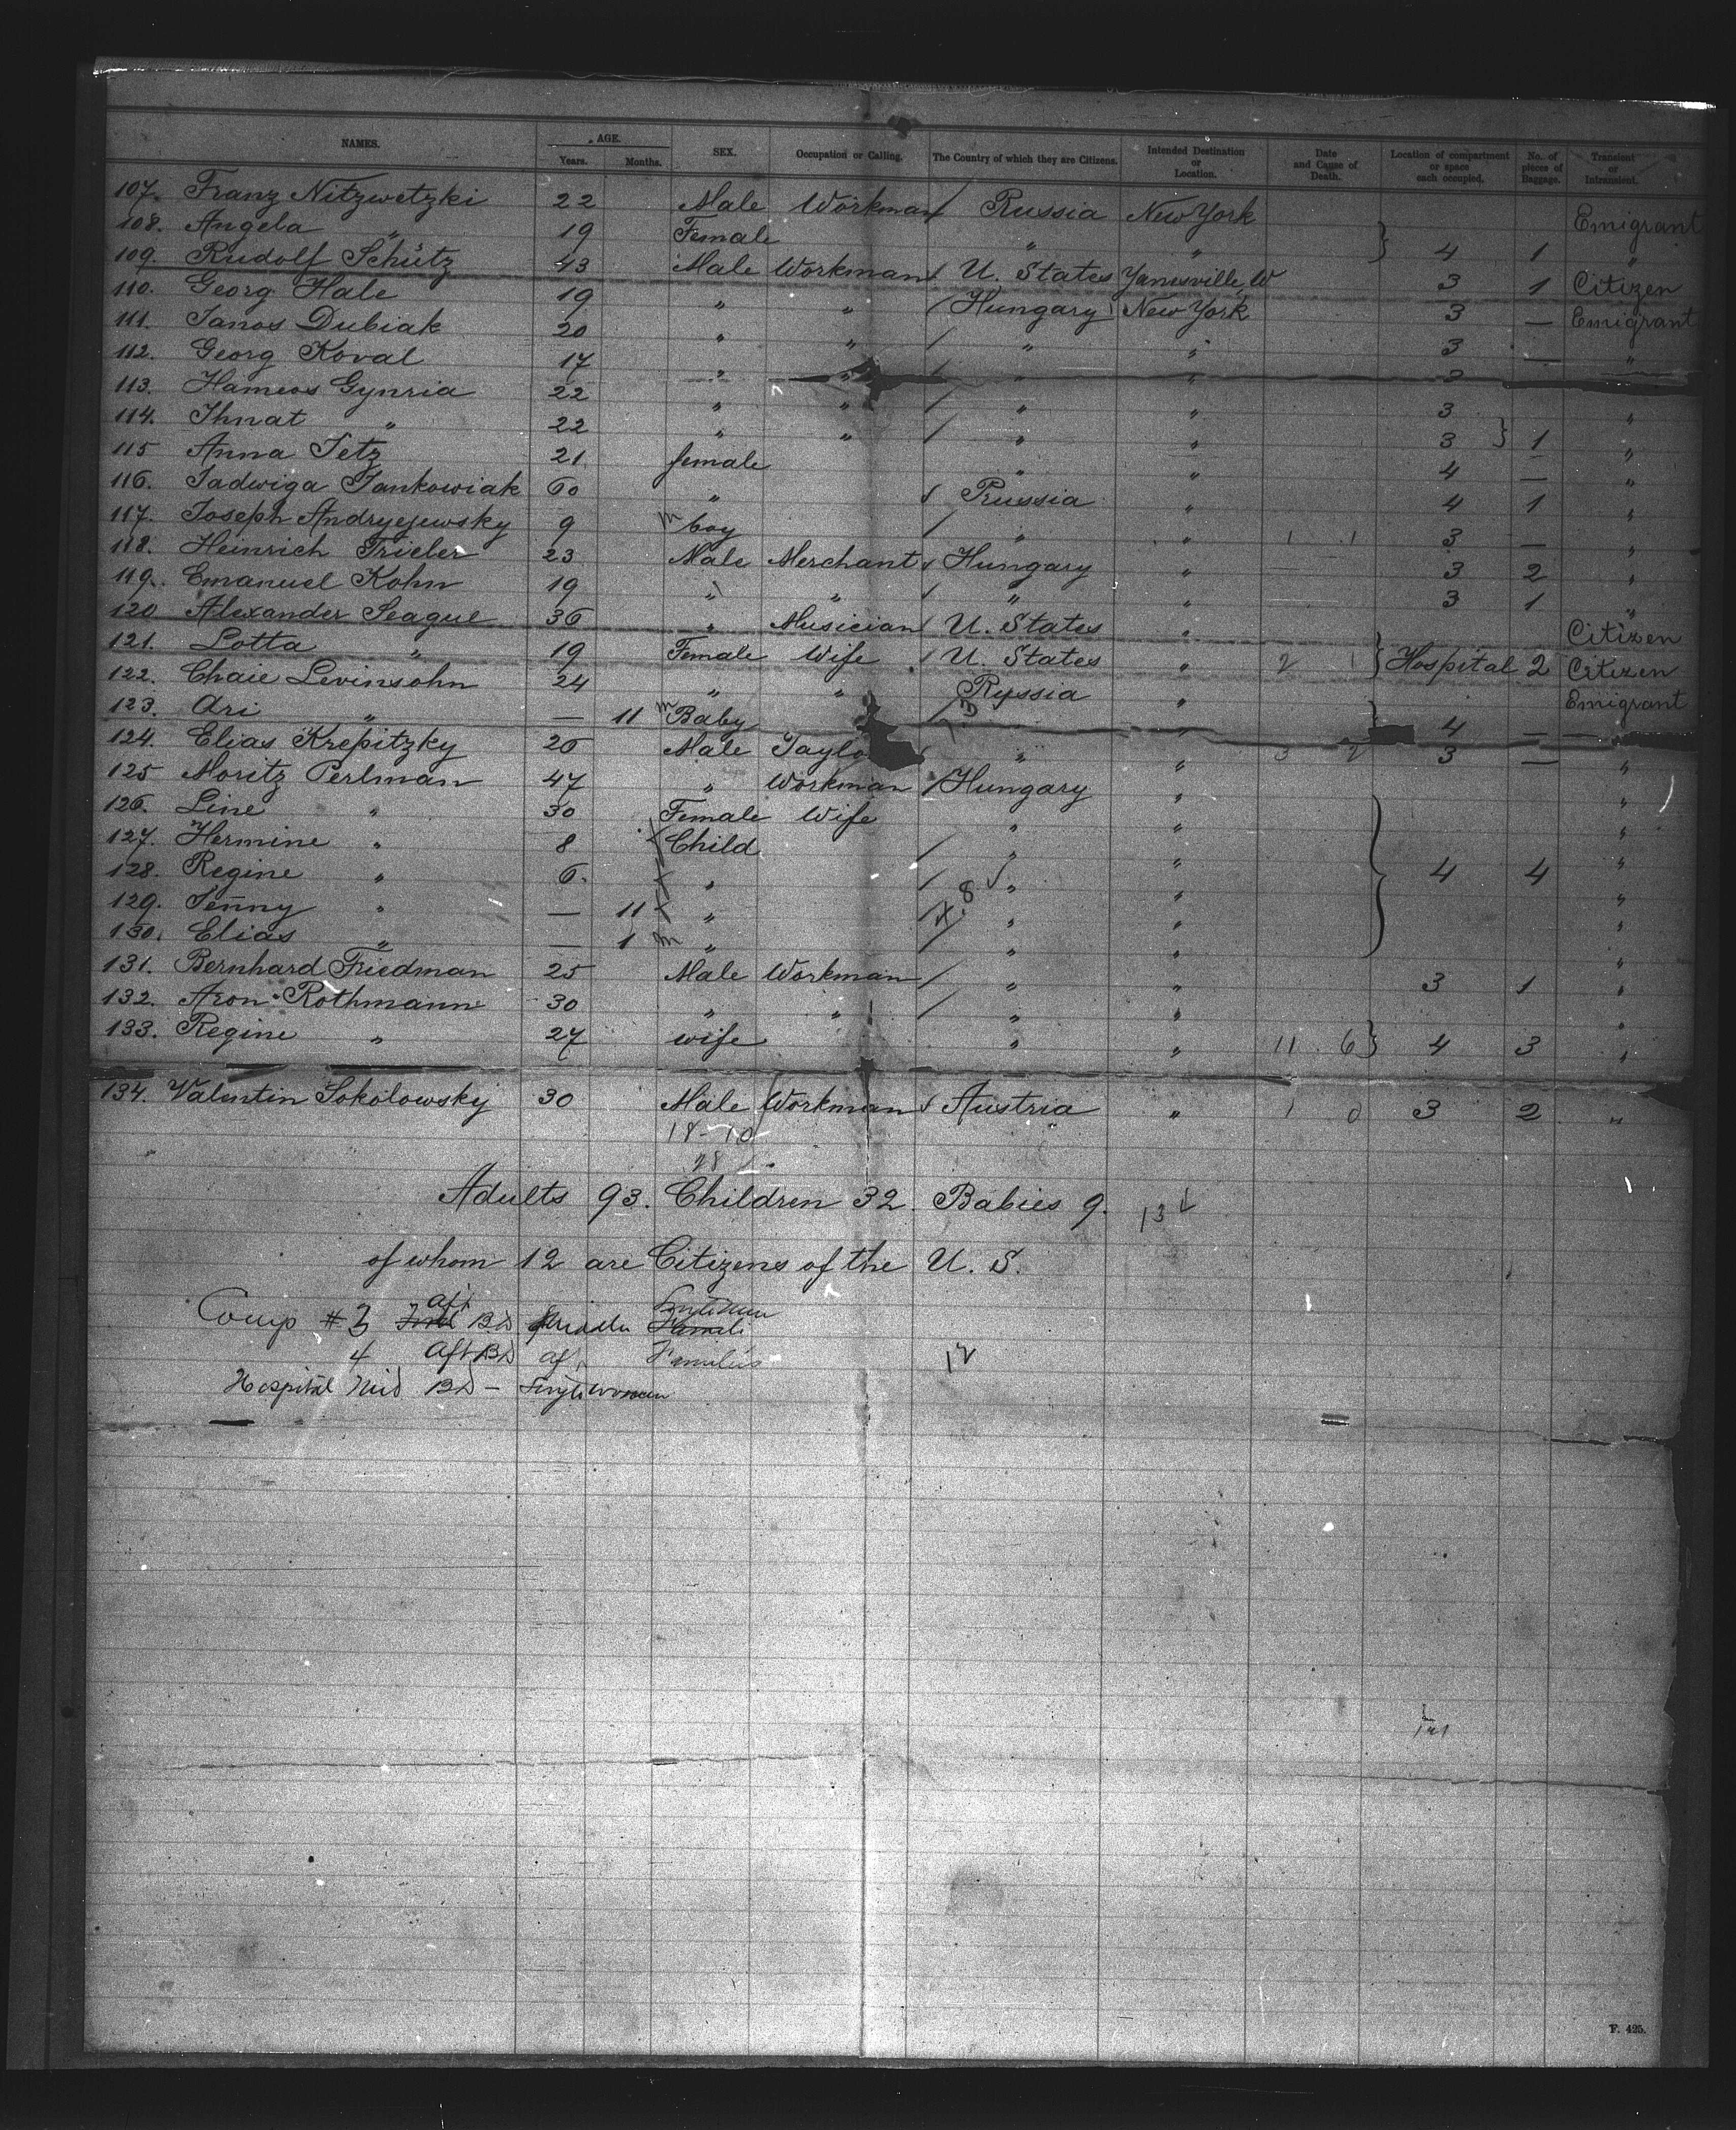 NAMES. AGE. Years. Months. SEX. Occupation or Calling. The Country of which they are Citizens. Intended Destination or Location. Date and Cause of Death. Location of compartment or space each occupied. No. of pieces of Baggage. Transient or Intransient.
107. Franz Nitzwetzki 22 Male Workman Russia New York Emigrant
108. Angela " 19 Female " " 4 1 "
109. Rudolf Schütz 43 Male Workman U. States Yanesville, W 3 1 Citizen
110. Georg Hale 19 " " Hungary New York 3 — Emigrant
111. Janos Dubiak 20 " " " " 3 — "
112. Georg Koval 17 " " " " 3 "
113. Hameos Gynria 22 " " " " 3 "
114. Ihnat " 22 " " " " 3 1 "
115 Anna Tetz 21 female " " 4 — "
116. Jadwiga Jankowiak 60 " Prussia " 4 1 "
117. Joseph Andryejewsky 9 m boy " " 1 1 3 — "
118. Heinrich Trieler 23 Male Merchant Hungary " 3 2 "
119. Emanuel Kohn 19 " " " " 3 1 "
120 Alexander Seague 36 " Musician U. States " Citizen
121. Lotta " 19 Female Wife U. States " 2 1 Hospital 2 Citizen
122. Chaie Levinsohn 24 " " Russia " Emigrant
123. Ari " — 11 m Baby " 4 —
124. Elias Krepitzky 26 Male Taylo " " 3 2 3 — "
125 Moritz Perlman 47 " Workman Hungary " "
126. Line " 30 Female Wife " " "
127. Hermine " 8 Child " " "
128. Regine " 6. " " " 4 4 "
129. Jenny " — 11 " " " "
130. Elias " — 1 m " " " "
131. Bernhard Friedman 25 Male Workman " " 3 1 "
132. Aron Rothmann 30 " " " " "
133. Regine " 27 wife " " 11 6 4 3 "
134. Valentin Sokolowsky 30 Male Workman Austria " 1 0 3 2 "
18-10
28
Adults 93. Children 32. Babies 9.
of whom 12 are Citizens of the U. S.
Comp #3 aft
4 Aft Families 12
Hospital Mid
F. 425.